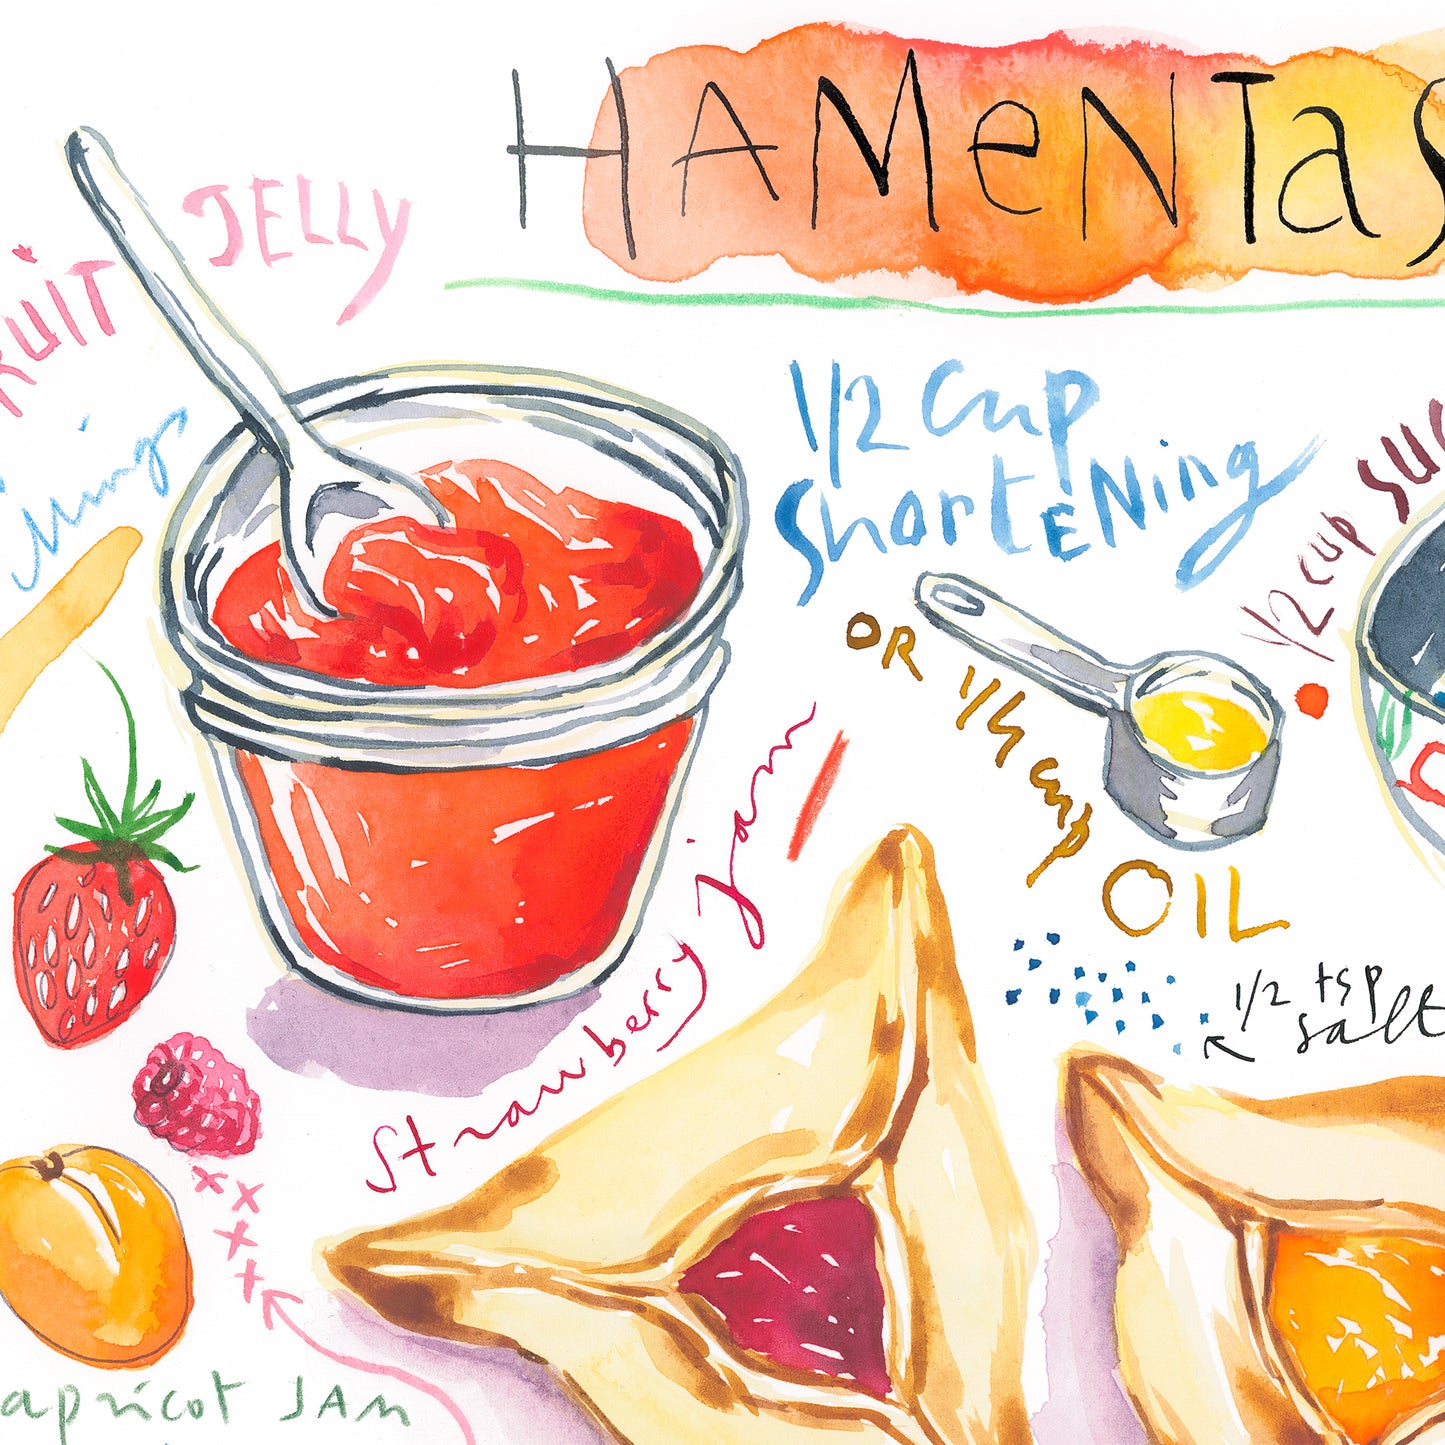 HAMeNTaS
FRUIT JELLY
1/2 cup
ShortENing
OR 1/4 cup
OIL
1/2 cup SUG
1/2 tsp
salt
strawberry jam
apricot JAM